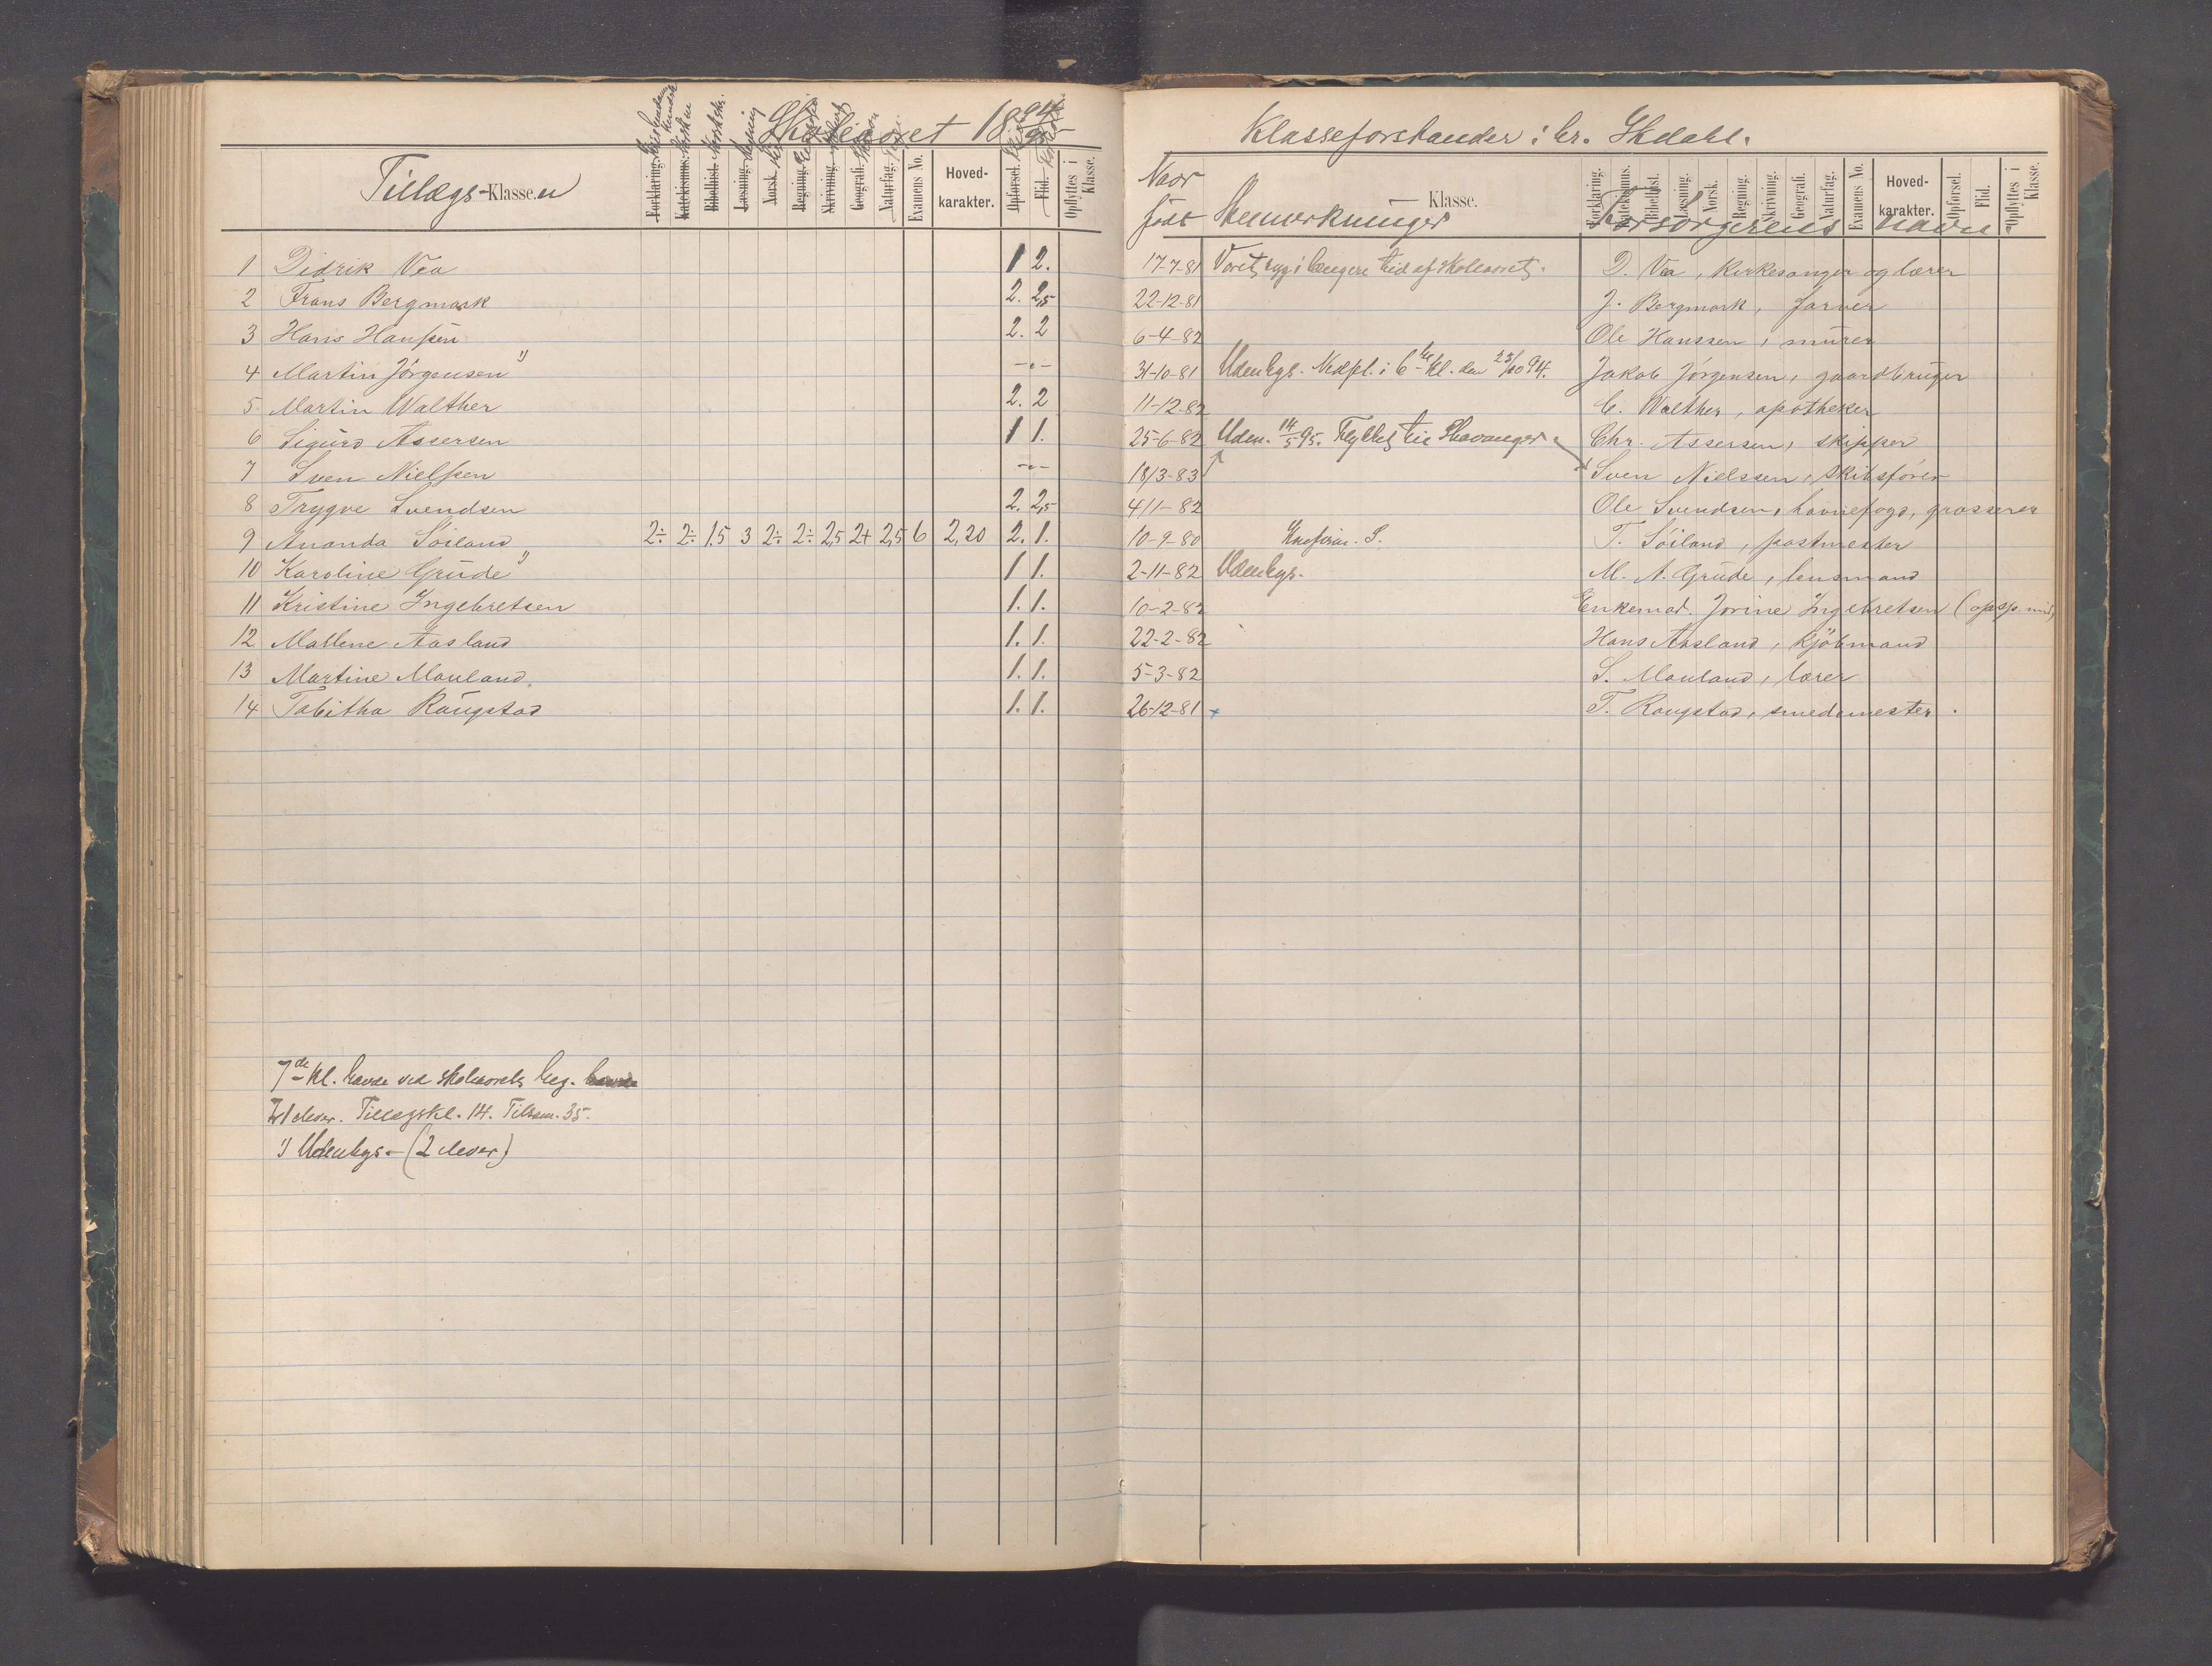 Skoleaaret 1894/95
Tillægs-Klasse.n
Forklaring. Katekismus. Bibelhist. Læsning. Norsk. Regning. Skrivning. Geografi. Naturfag. Examens No. Hoved-karakter. Opførsel. Flid. Opflyttes i Klasse.
1 Didrik Vea 1 2.
2 Frans Bergmark 2. 2,5
3 Hans Hanssen 2. 2
4 Martin Jörgensen 1) -"-
5 Martin Walther 2. 2
6 Sigurd Assersen 1 1.
7 Sven Nielssen -"-
8 Trygve Svendsen 2. 2,5
9 Ananda Söiland 2÷ 2÷ 1.5 3 2÷ 2÷ 2,5 2+ 2,5 6 2,20 2. 1.
10 Karoline Grude 1) 1 1.
11 Kristine Ingebretsen 1. 1.
12 Mallene Aasland 1. 1.
13 Martine Mauland. 1. 1.
14 Tabitha Raugstad 1. 1.
7de Kl. havde ved skoleaarets beg.
21 elever. Tillægskl. 14. Tilsam. 35.
1) Udenbys - (2 elever)
Klasseforstander: hr. Skdahl.
Naar født Bemerkninger Klasse. Forsörgerens navn.
Forklaring. Katekismus. Bibelhist. Læsning. Norsk. Regning. Skrivning. Geografi. Naturfag. Examens No. Hoved-karakter. Opførsel. Flid. Opflyttes i Klasse.
17-7-81 Været syg i længere tid af skoleaaret. D. Vea, kirkesanger og lærer
22-12-81 J. Bergmark, farver
6-4-82 Ole Hanssen, murer
31-10-81 Udenbys. Nedfl. i 6te kl. den 23/10 94. Jakob Jörgensen, gaardbruger
11-12-82 C. Walther, apotheker
25-6-82 Uden. 14/5 95. Flyttet til Stavanger Chr. Assersen, skipper
18/3-83 Sven Nielssen, skibsförer
4/11-82 Ole Svendsen, havnefoged, grosserer
10-9-80 T. Söiland, postmester
2-11-82 Udenbys. M. A. Grude, lensmand
10-2-82 Enkemad. Jorine Ingebretsen
22-2-82 Hans Aasland, kjöbmand
5-3-82 S. Mauland, lærer
26-12-81 + T. Raugstad, smedemester.